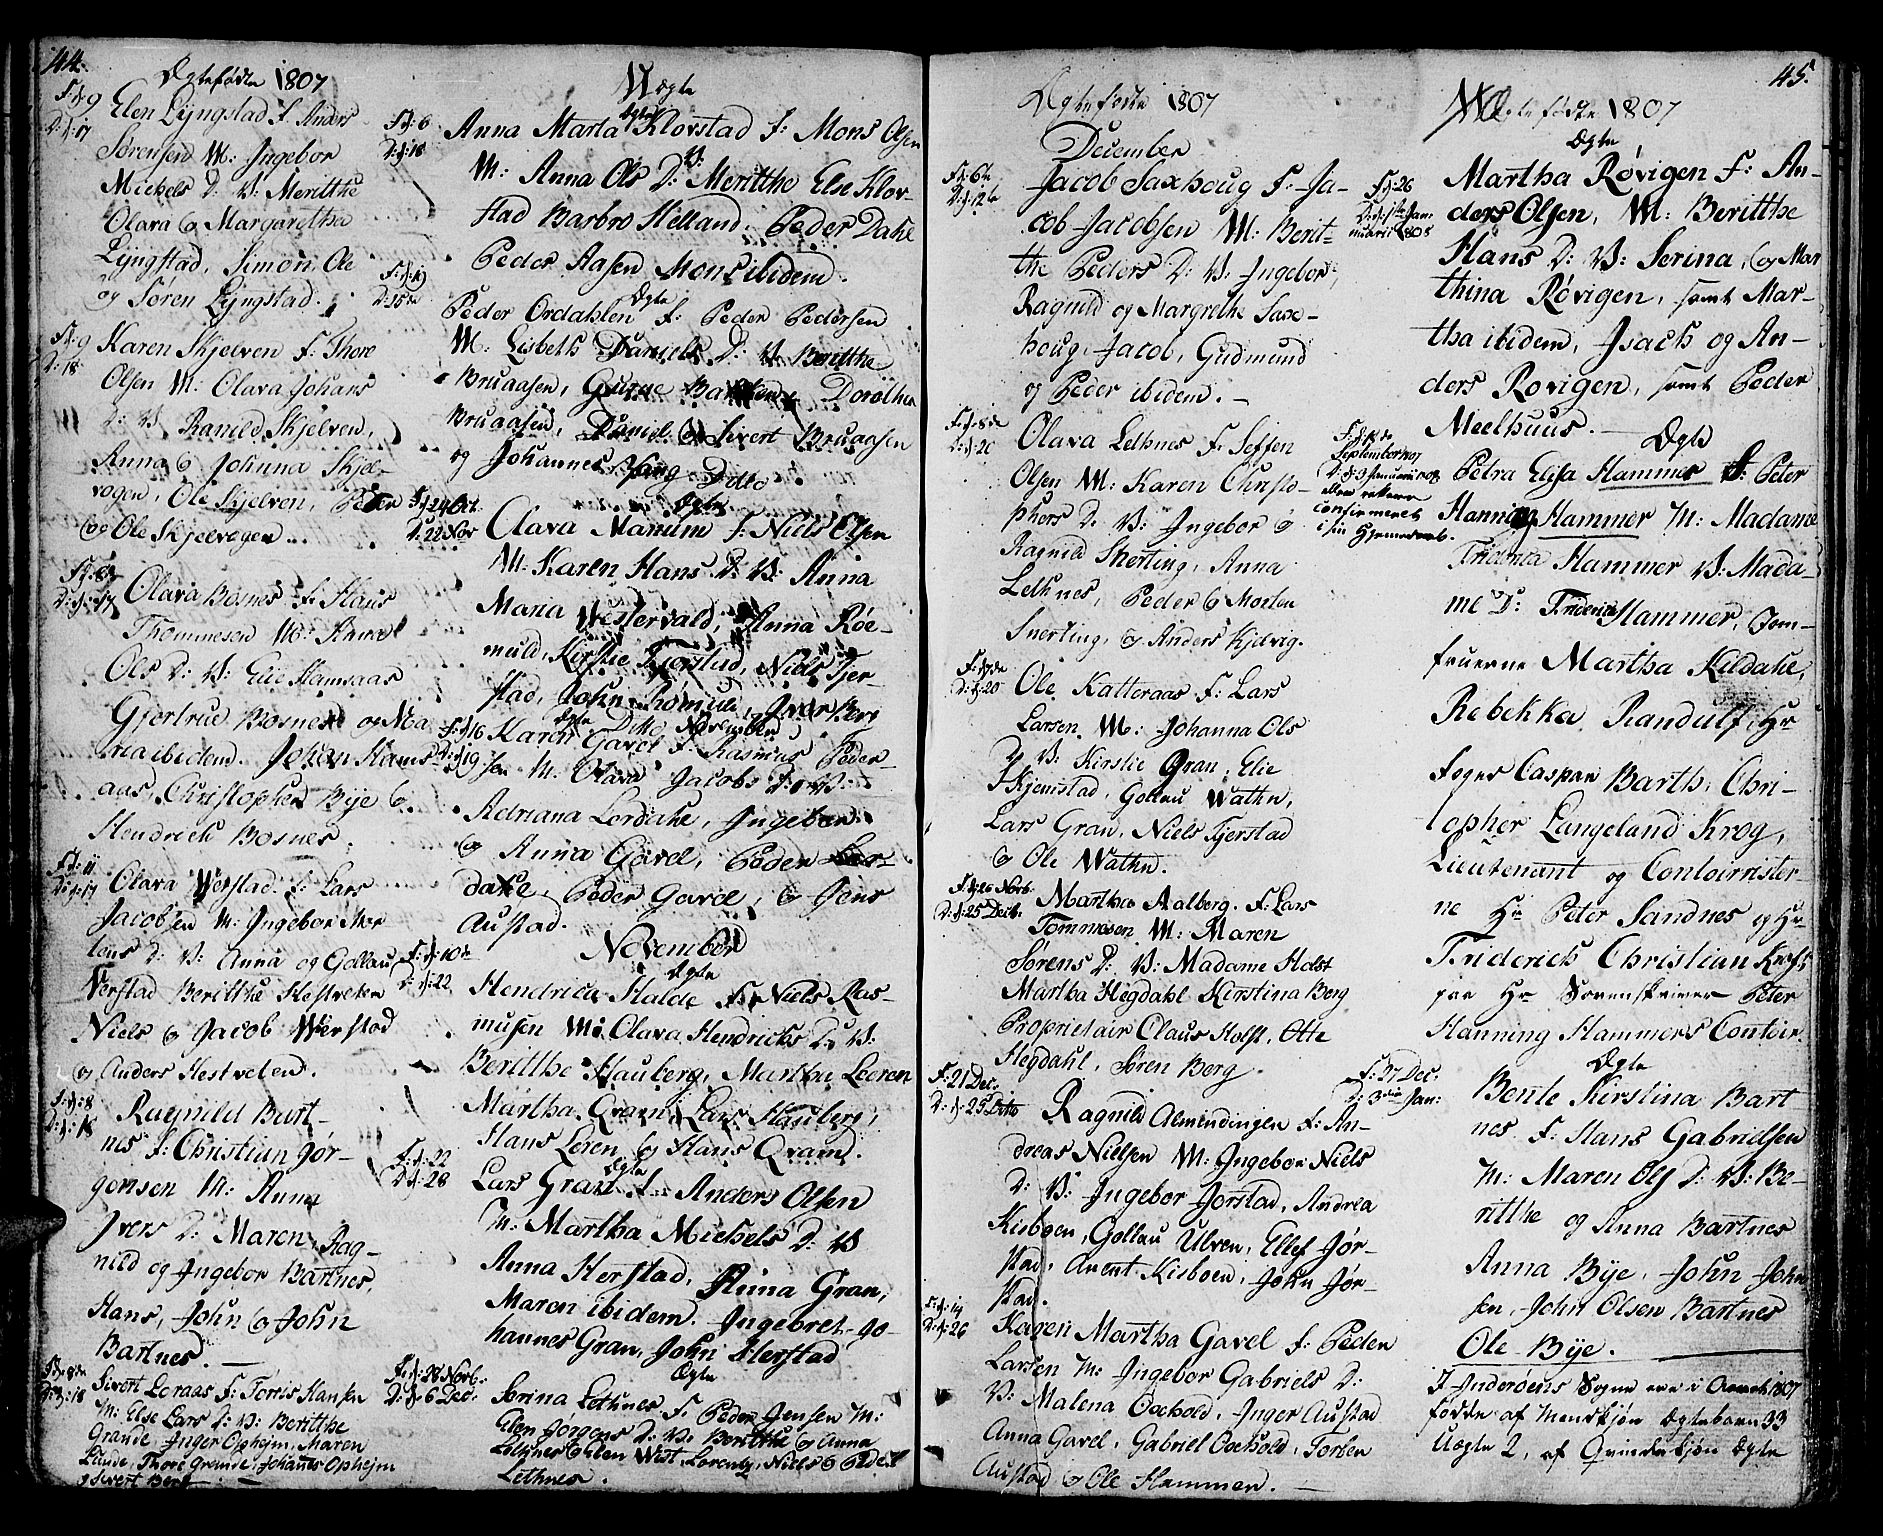 44.
Ægtefødte 1807
F: d: 9
D: d: 17
Elen Lÿngstad F: Anders
Sørensen M: Ingebor
Mickels D: V: Meritthe
Olava & Margaretha
Lÿngstad, Simon, Ole
og Søren Lÿngstad.
F: d: 9
D: 18
Karen Skjelven F: Thore
Olsen M: Olava Johans
D: V: Ranild Skjelven,
Anna & Johnna Skjel-
vogen, Ole Skjelven, Peder
& Ole Skjelvogen
D: d: 17
Olava Bosnes F: Hans
Thommesen M: Anna
Ols D: V: Elie Hamsaas
Gjertrue Bosnes og Ma
ria ibidem. Johan Hams
aas, Christopher Bÿe &
Hendrich Bosnes.
F: d: 11
D: d: 17
Olava Verstad F: Lars
Jacobsen M: Ingebor Mor
tens D: V: Anna og Gollau
Verstad Beritthe Hestveten
Niels & Jacob Werstad
& Anders Hestveten.
F: d: 8
D: d: 18
Ragnild Bart-
nes F: Christian Jør-
gensen M: Anna
Ivers D: Maren, Rag-
nild og Ingebor Bartnes,
Hans, John & John
Bartnes.
D: d: 18
Sivert Loraas F: Torris Hansen
M: Else Lars D: V: Beritthe
Grande, Inger Opheim, Maren
Laude, Thore Grande, Johannes Opheim
& Sivert Berg
Uægte
F: d: 6
D: d: 18
Ægte
Anna Marta Klovstad F: Mons Olsen
M: Anna Ols D: V: Meritthe Else Klov-
stad Barbro Helland, Peder Dahl
Peder Aasen Mons ibidem.
F: d: 19
D: 15de
Ægte
Peder Ordahlen F: Peder Pedersen
M: Lisbeth Daniels D: V: Beritthe
Bruaasen, Gurue Dorothea
Bruaasen, Daniel & Sivert Bruaasen
og Johannes Ditto
F: d: 24 Oct
D: 22 Nov
Ægte
Olava Manum F: Niels Olsen
M: Karen Hans D: V: Anna
Maria Westervald, Anna Røe-
muld, Kirstie Tjerstad, Niels Tjer-
stad, John Romuld, Iver Berg
F: d: 16
D: d: 19
Ægte Ditto November
Karen Gavel F: Rasmus Peder-
sen M: Olava Jacobs D: V:
Adriana Lordahl, Ingebor
& Anna Gavel, Peder Lor-
dahl, Peder Gavel, & Jens
Austad.
November
F: d: 10de
D: d: 22
Ægte
Hendrica Halde F: Niels Ras-
musen M: Olava Hendrichs D: V:
Beritthe Hauberg, Martha Leeren
Martha Qvam, Lars Hauberg,
Hans Leren & Hans Qvam.
F: d: 22
D: d: 28
Ægte
Lars Gran F: Anders Olsen
M: Martha Mickels D: V
Anna Herstad, Anna Gran,
Maren ibidem. Ingebret Jo-
hannes Gran, John Herstad
F: d: 28 Novb:
D: d: 6 Dec:
Ægte
Serina Lethnes F: Peder Jensen M:
Elen Jørgens D: V: Beritthe & Anna
Lethnes Elen West Lorentz, Niels & Peder
Lethnes.
45.
Ægtefødte 1807
December
F: d: 6te
D: d: 12te
Jacob Saxhoug F: Ja-
cob Jacobsen M: Berit-
the Peders D: V: Ingebor,
Ragnild og Margrethe Sax-
houg, Jacob, Gudmund
og Peder ibidem.
F: d: 8de
D: d: 20
Olava Lethnes F: Steffen
Olsen M: Karen Christo-
phers D: V: Ingebor &
Ragnild Snerting, Anna
Lethnes, Peder & Morten
Snerting, & Anders Kjelvig.
D: d: 20
Ole Katteraas F: Lars
Larsen M: Johanna Ols
D: V: Kirstie Gran, Elie
Skjemstad, Gollau Wathn,
Lars Gran, Niels Tjerstad
& Ole Wathn.
F: d: 26 Novb:
D: d: 25 Decb:
Marthe Aalberg. F: Lars
Tommesen M: Maren
Sørens D: V: Madame Holst
Martha Hegdahl Kirstina Berg
Proprietair Claus Holst, Otte
Hegdahl, Søren Berg.
F: 21 Dec:
D: d: 25 Ditto
Ragnild Almendingen F: An-
dreas Nielsen M: Ingebor Niels
D: V: Ingebor Jorstad, Andrea
Kisboen, Gollau Ulven, Ellef Jør-
stad, Arent Kisboen, John Jør-
stad.
F: d: 14
D: d: 26
Karen Martha Gavel F: Peder
Larsen M: Ingebor Gabriels D:
V: Malena Oxehold, Inger Austad
Anna Gavel, Gabriel Oxehold, Torber
Austad & Ole Hammer.
Ægtefødte 1807
F: d: 26
D: d: 1ste Jan
nuarii 1808
Ægte
Martha Røvigen F: An-
ders Olsen, M: Beritthe
Hans D: V: Serina, & Mar
thina Røvigen, samt Mar-
tha ibidem, Isach og An-
ders Rovigen, samt Peder
Meelhuus.
September 1807
D: d: 3 Januarii 1808
confirmeret
i sin Hjemmedaab.
Ægte
Petra Elisa Hammer F: Peter
Hanning Hammer M: Madame
Hammer V: Mada-
me D: Friderica Hammer, Jom-
fruerne Martha Kildahl,
Rebekka Randulf, Hr
Foged Caspar Barth, Chri-
stopher Langeland Krog,
Lieutenant og Contoirister-
ne Hr Peter Sandnes og Hr
Friderich Christian Kraft
paa Hr Sorenskriver Peter
Hanning Hammers Contoir.
F: 27 Dec:
D: 3die Jan:
Ægte
Bente Kirstina Bart
nes F: Hans Gabrielsen
M: Maren Ols D: V: Be-
ritthe og Anna Bartnes
Anna Bÿe, John John
sen, John Olsen Bartnes
Ole Bÿe.
I Inderøens Sogn ere i Aaret 1807
fødte af Mandkjøn Ægte børn 33
Uægte 2, af Qvindekjøn Ægte